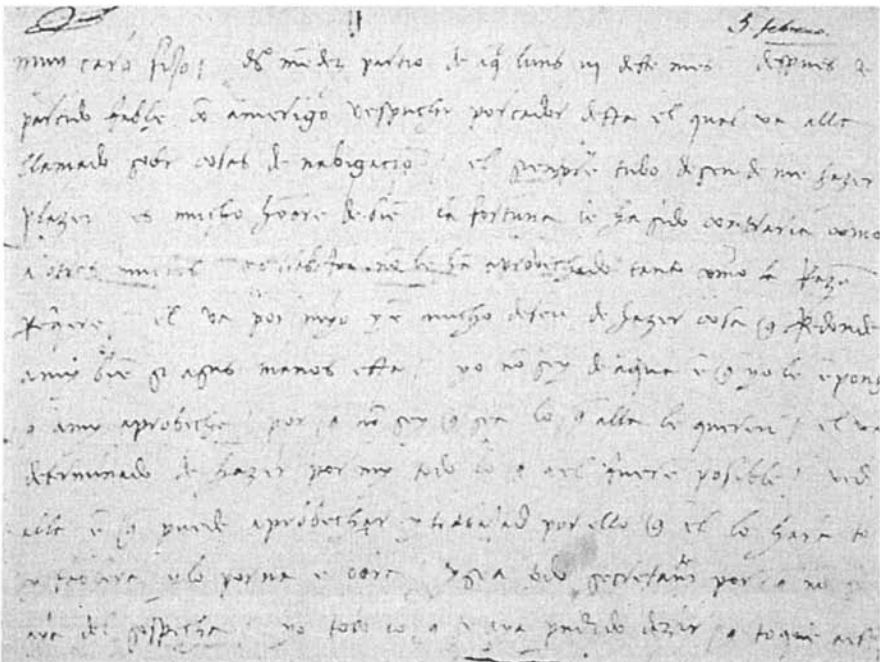 5 febrero.
muy caro fijo / dº mēdez partio de aq̄ luns iij deste mes despues de
partido fable cō amerigo vespuchi portador desta el qual va alla
llamado sobr cosas de nabigaciō / el siempre tubo deseo de me hazer
plazer es mucho hōbre de biē la fortuna le ha sido contraria como
a otros muchos sus trabajos no le hā aprobechado tanto como la razō
reqiere / el va por myo y ē mucho deseo de hazer cosa q̄ redonde
a my biē si a sus manos esta / yo nō sey de aqua ē q̄ yo le ēponga
q̄ a my aprobeche / porq̄ nō sey q̄ sea lo q̄ alla le quieren / el va
determinado de hazer por my todo lo q̄ a el fuere posible / ved
alla ē q̄ puede aprobechar y trabajad por ello q̄ el lo hara to
y lo porna e obra y sea todo secretamēte porq̄ no se
del sospecha / yo todo lo q̄ se aya podido dezir q̄ toque